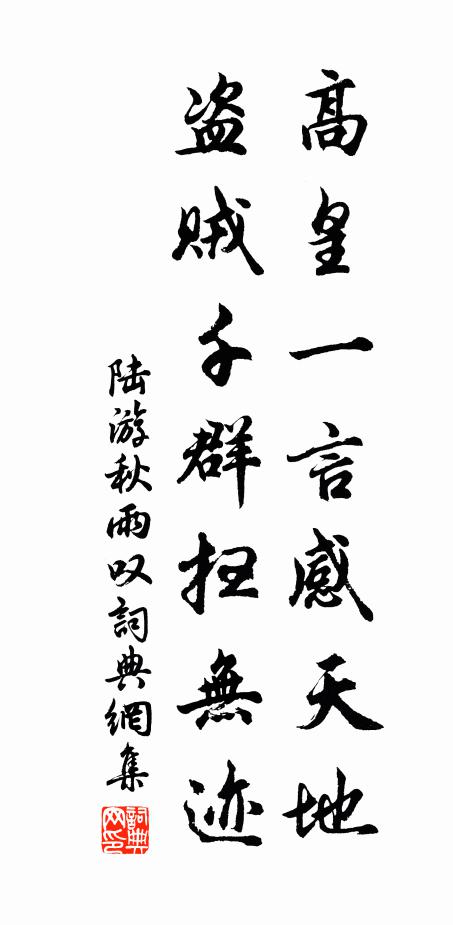 高皇一言感天地
盗賊千群扫無迹
陆游秋雨叹詞典網集
詞典网印